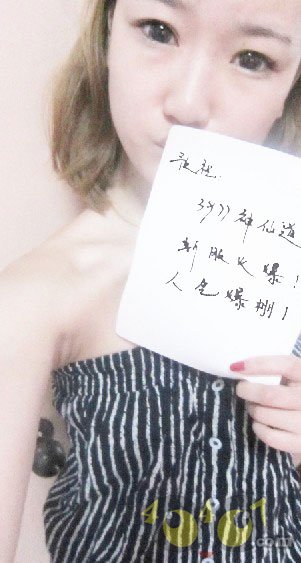 祝祝
3977神仙道
新服火爆！
人气爆棚！
4O4O7
.com